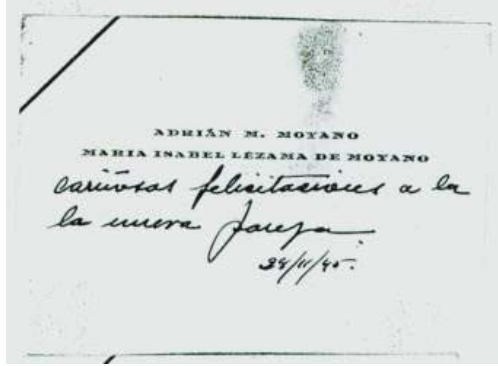 ADRIÁN M. MOYANO
MARIA ISABEL LEZAMA DE MOYANO
cariñosas felicitaciones a la
la nueva pareja.
28/11/45.